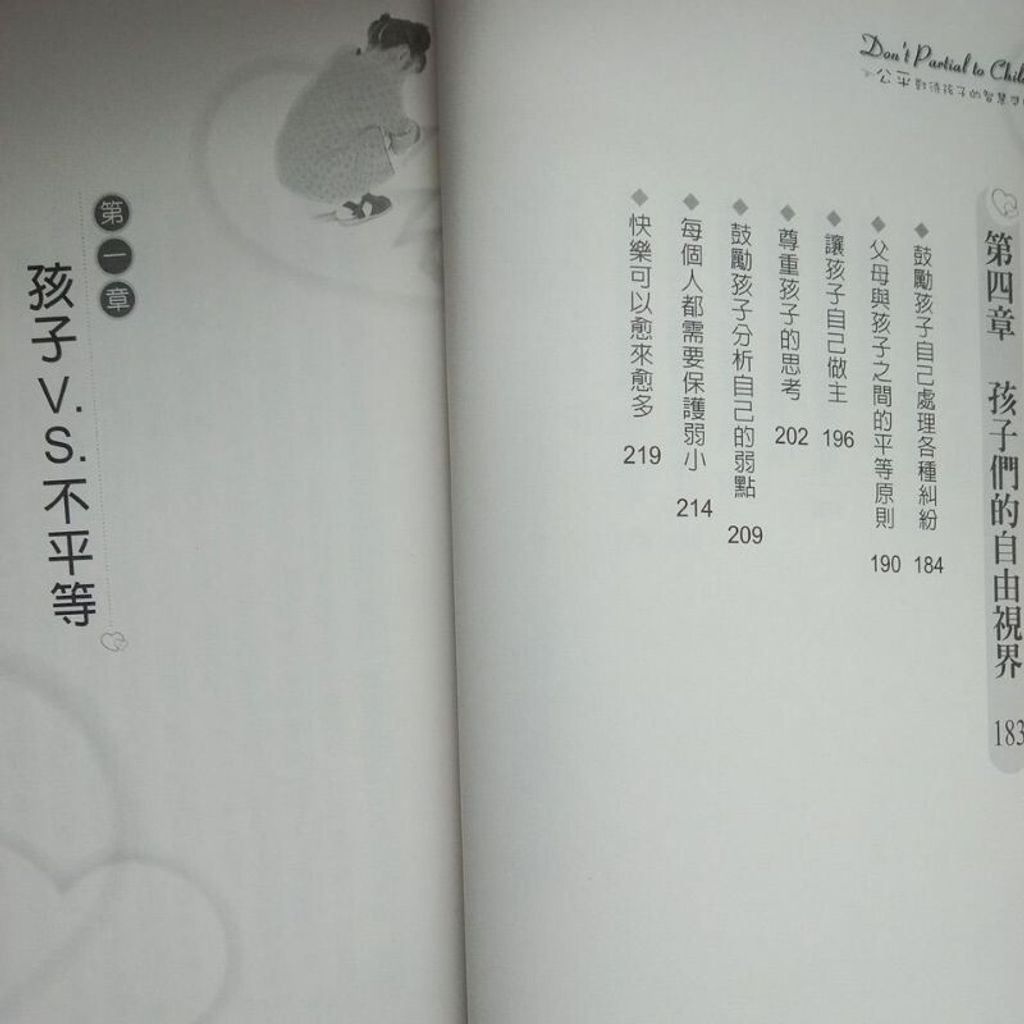 Don't Partial to Chil
公平對待孩子的智慧
第四章 孩子們的自由視界 183
◆鼓勵孩子自己處理各種糾紛 184
◆父母與孩子之間的平等原則 190
◆讓孩子自己做主 196
◆尊重孩子的思考 202
◆鼓勵孩子分析自己的弱點 209
◆每個人都需要保護弱小 214
◆快樂可以愈來愈多 219
第一章
孩子V.S.不平等